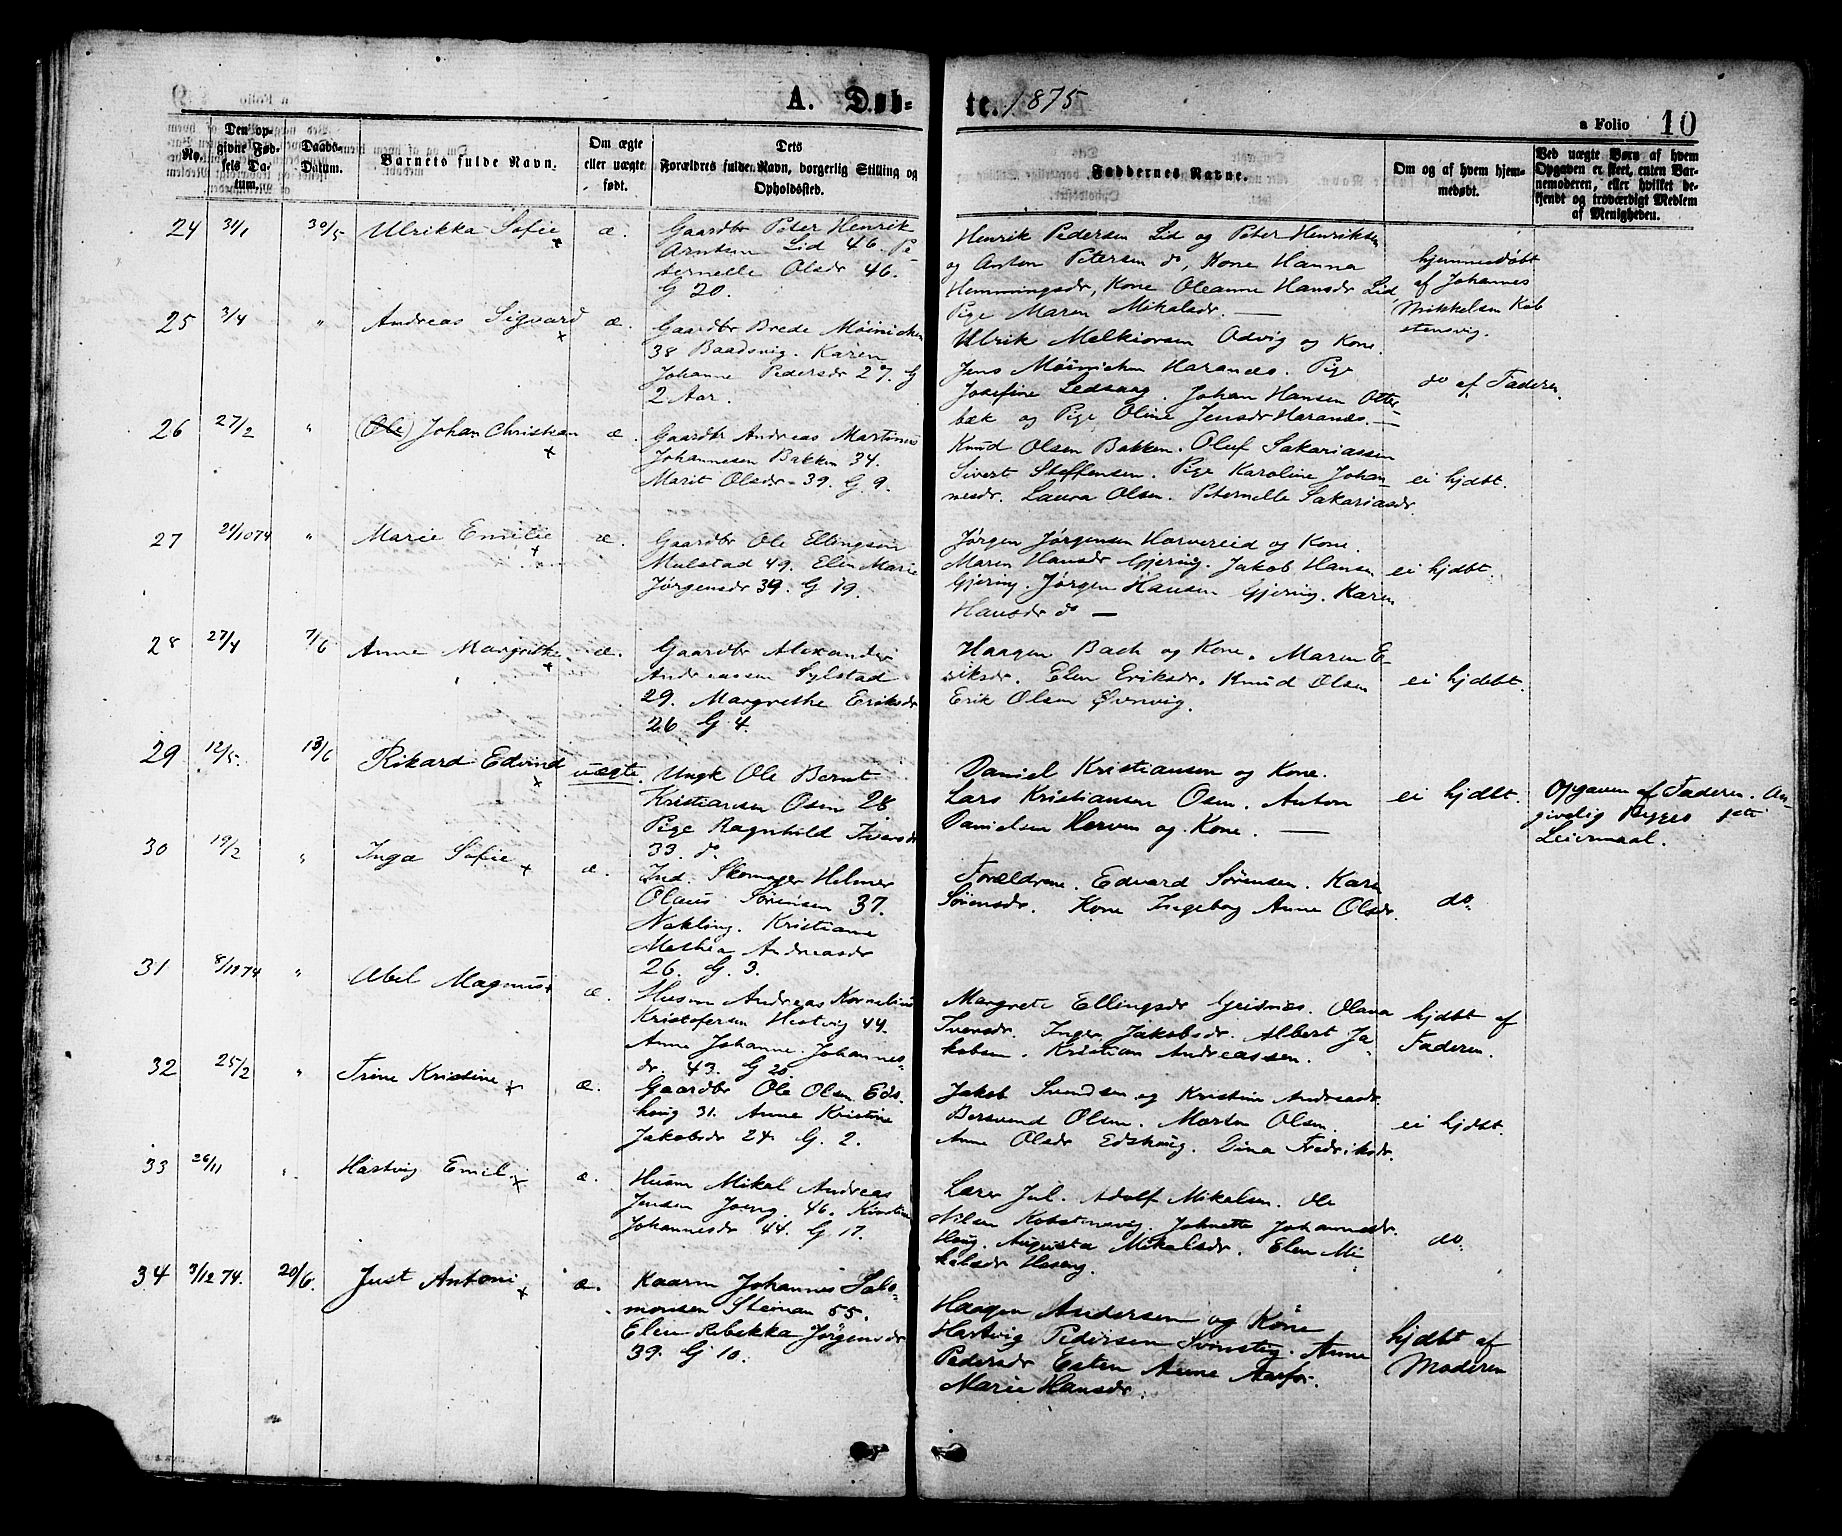 A. Døb-
te. 1875
a Folio 10
No.
Den op-
givne Fød-
sels Da-
tum.
Daabs-
Datum.
Barnets fulde Navn.
Om ægte
eller uægte
født.
Dets
Forældres fulde Navn, borgerlig Stilling og
Opholdssted.
Faddernes Navne.
Om og af hvem hjem-
medøbt.
Ved uægte Børn af hvem
Opgaven er skeet, enten Bar-
nemoderen, eller hvilket be-
kjendt og troværdigt Medlem
af Menigheden.
24 31/1 30/5 Ulrikka Sofie æ.
Gaardbr Peter Henrik
Arntsen Lid 46. Pe
ternelle Olsdr 46.
G 20.
Henrik Pedersen Lid og Peter Henriksen
og Anton Petersen do, Kone Hanna
Hemmingsdr, Kone Oleanne Hansdr Lid,
Pige Maren Mikalsdr. —
hjemmedøbt
af Johannes
Mikkelsen Kob
stensvig.
25 3/4 " Andreas Sigvard æ.
Gaardbr Brede Möinichen
38 Baadsvig. Karen
Johanne Pedersdr 27. G
2 Aar.
Ulrik Melkiorsen Odvig og Kone.
Jens Möinichen Haranes. Pige
Josefine Ledsaag. Johan Hansen Otter
bæk og Pige Oline Jensdr Haranes. —
do af Faderen.
26 27/2 " (Ole) Johan Christian æ.
Gaardbr Andreas Martinus
Johannesen Bakken 34.
Marit Olsdr 39. G. 9.
Knud Olsen Bakken. Oluf Sakariassen
Sivert Steffensen. Pige Karoline Johan-
nesdr. Laura Olsen. Peternelle Sakariasdr.
ei hjdbt.
27 21/10 74 " Marie Emilie æ.
Gaardbr Ole Ellingsen
Mulstad 49. Elen Marie
Jørgensdr 39. G 19.
Jørgen Jørgensen Horvereid og Kone.
Maren Hansdr Gjering. Jakob Hansen
Gjering. Jørgen Hansen Gjering. Karen
Hansdr do —
ei hjdbt.
28 27/4 7/6 Anne Margrethe æ.
Gaardbr Alexander
Andreassen Sylstad
29. Margrethe Eriksdr
26 G 4.
Haagen Bach og Kone. Maren E-
riksdr. Elen Eriksdr. Knud Olsen
Erik Olsen Øvrvig.
ei hjdbt.
29 12/5. 13/6 Rikard Edvind uægte.
Ungk Ole Bernt
Kristiansen Osen 28
Pige Ragnhild Iversdr
33. do.
Daniel Kristiansen og Kone.
Lars Kristiansen Osen. Anton
Danielsen Horven og Kone. —
ei hjdbt.
Opgaven af Faderen. An-
givelig Begges 1ste
Leiermaal.
30 19/2 " Inga Sofie æ.
Ind. Skomager Helmer
Olaus Sørensen 37.
Nakling. Kristiane
Methea Andreasdr
26. G. 3.
Forældrene. Edvard Sørensen. Karen
Sørensdr. Kone Ingeborg Anne Olsdr.
do.
31 8/12 74 " Abel Magnus æ.
Husm Andreas Kornelius
Kristofersen Hestvig 44.
Anne Johanne Johannes-
dr. 43. G 20.
Margrete Ellingsdr Geidnes. Olava
Iversdr. Inger Jakobsdr. Albert Ja
kobsen. Kristian Andreassen.
hjdbt af
Faderen.
32 25/2 " Trine Kristine æ.
Gaardbr Ole Olsen Eds-
haug 31. Anne Kristine
Jakobsdr 24. G. 2.
Jakob Svendsen og Kristine Andreasdr.
Bersvend Olsen. Morten Olsen.
Anne Olsdr Edshaug. Dina Fredriksdr.
ei hjdbt.
33 26/11 " Hartvig Emil. æ.
Husm Mikal Andreas
Jensen 46. Kirstine
Johannesdr 44. G 17.
Lærer Jul. Adolf Mikalsen. Ole
Nilsen Kobstensvig. Johnette Johannesdr.
Haug. Augusta Mikalsdr. Elen Mi
kalsdr Haseng.
do.
34 3/12 74. 20/6. Just Antoni æ.
Kaarm Johannes Salo-
monsen Steinan 55.
Elen Rebekka Jørgensdr
39. G 10.
Haagen Andersen og Kone
Hartvig Pedersen Svinstig. Anne
Pedersdr Esten Anne Aarfor.
Marie Hansdr.
hjdbt af
Moderen